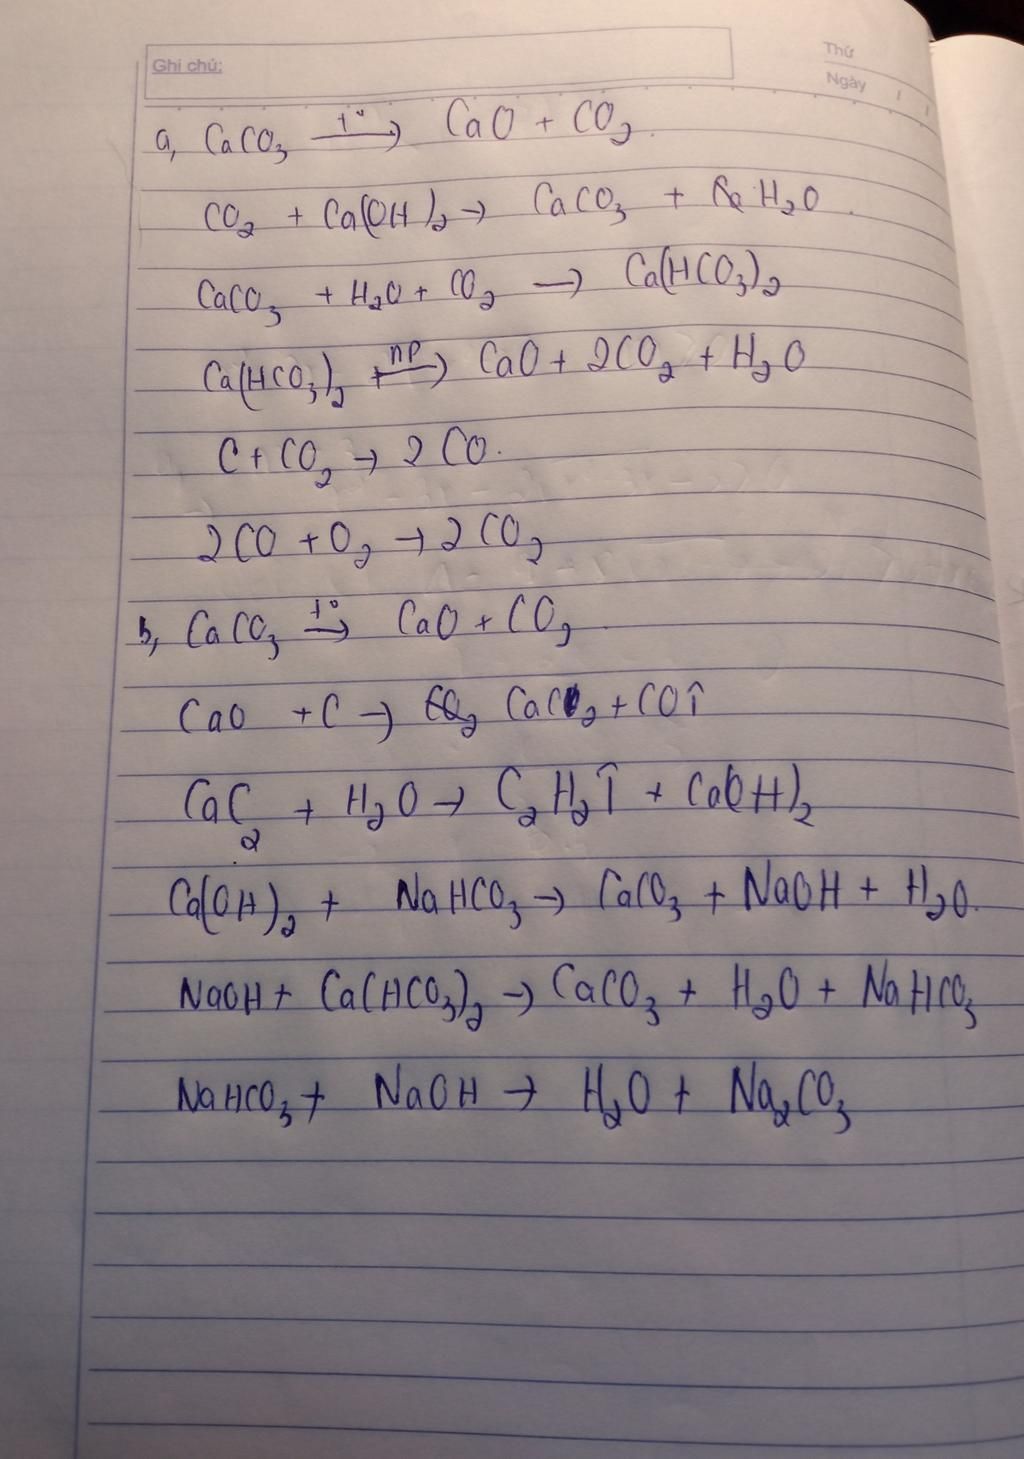 Ghi chú:
Thứ
Ngày / /
a, CaCO₃ —t°→ CaO + CO₂.
CO₂ + Ca(OH)₂ → CaCO₃ + H₂O.
CaCO₃ + H₂O + CO₂ → Ca(HCO₃)₂
Ca(HCO₃)₂ —np→ CaO + 2CO₂ + H₂O
C + CO₂ → 2CO.
2CO + O₂ → 2CO₂
b, CaCO₃ —t°→ CaO + CO₂.
CaO + C → CaC₂ + CO↑
CaC₂ + H₂O → C₂H₂↑ + Ca(OH)₂
Ca(OH)₂ + NaHCO₃ → CaCO₃ + NaOH + H₂O.
NaOH + Ca(HCO₃)₂ → CaCO₃ + H₂O + NaHCO₃
NaHCO₃ + NaOH → H₂O + Na₂CO₃